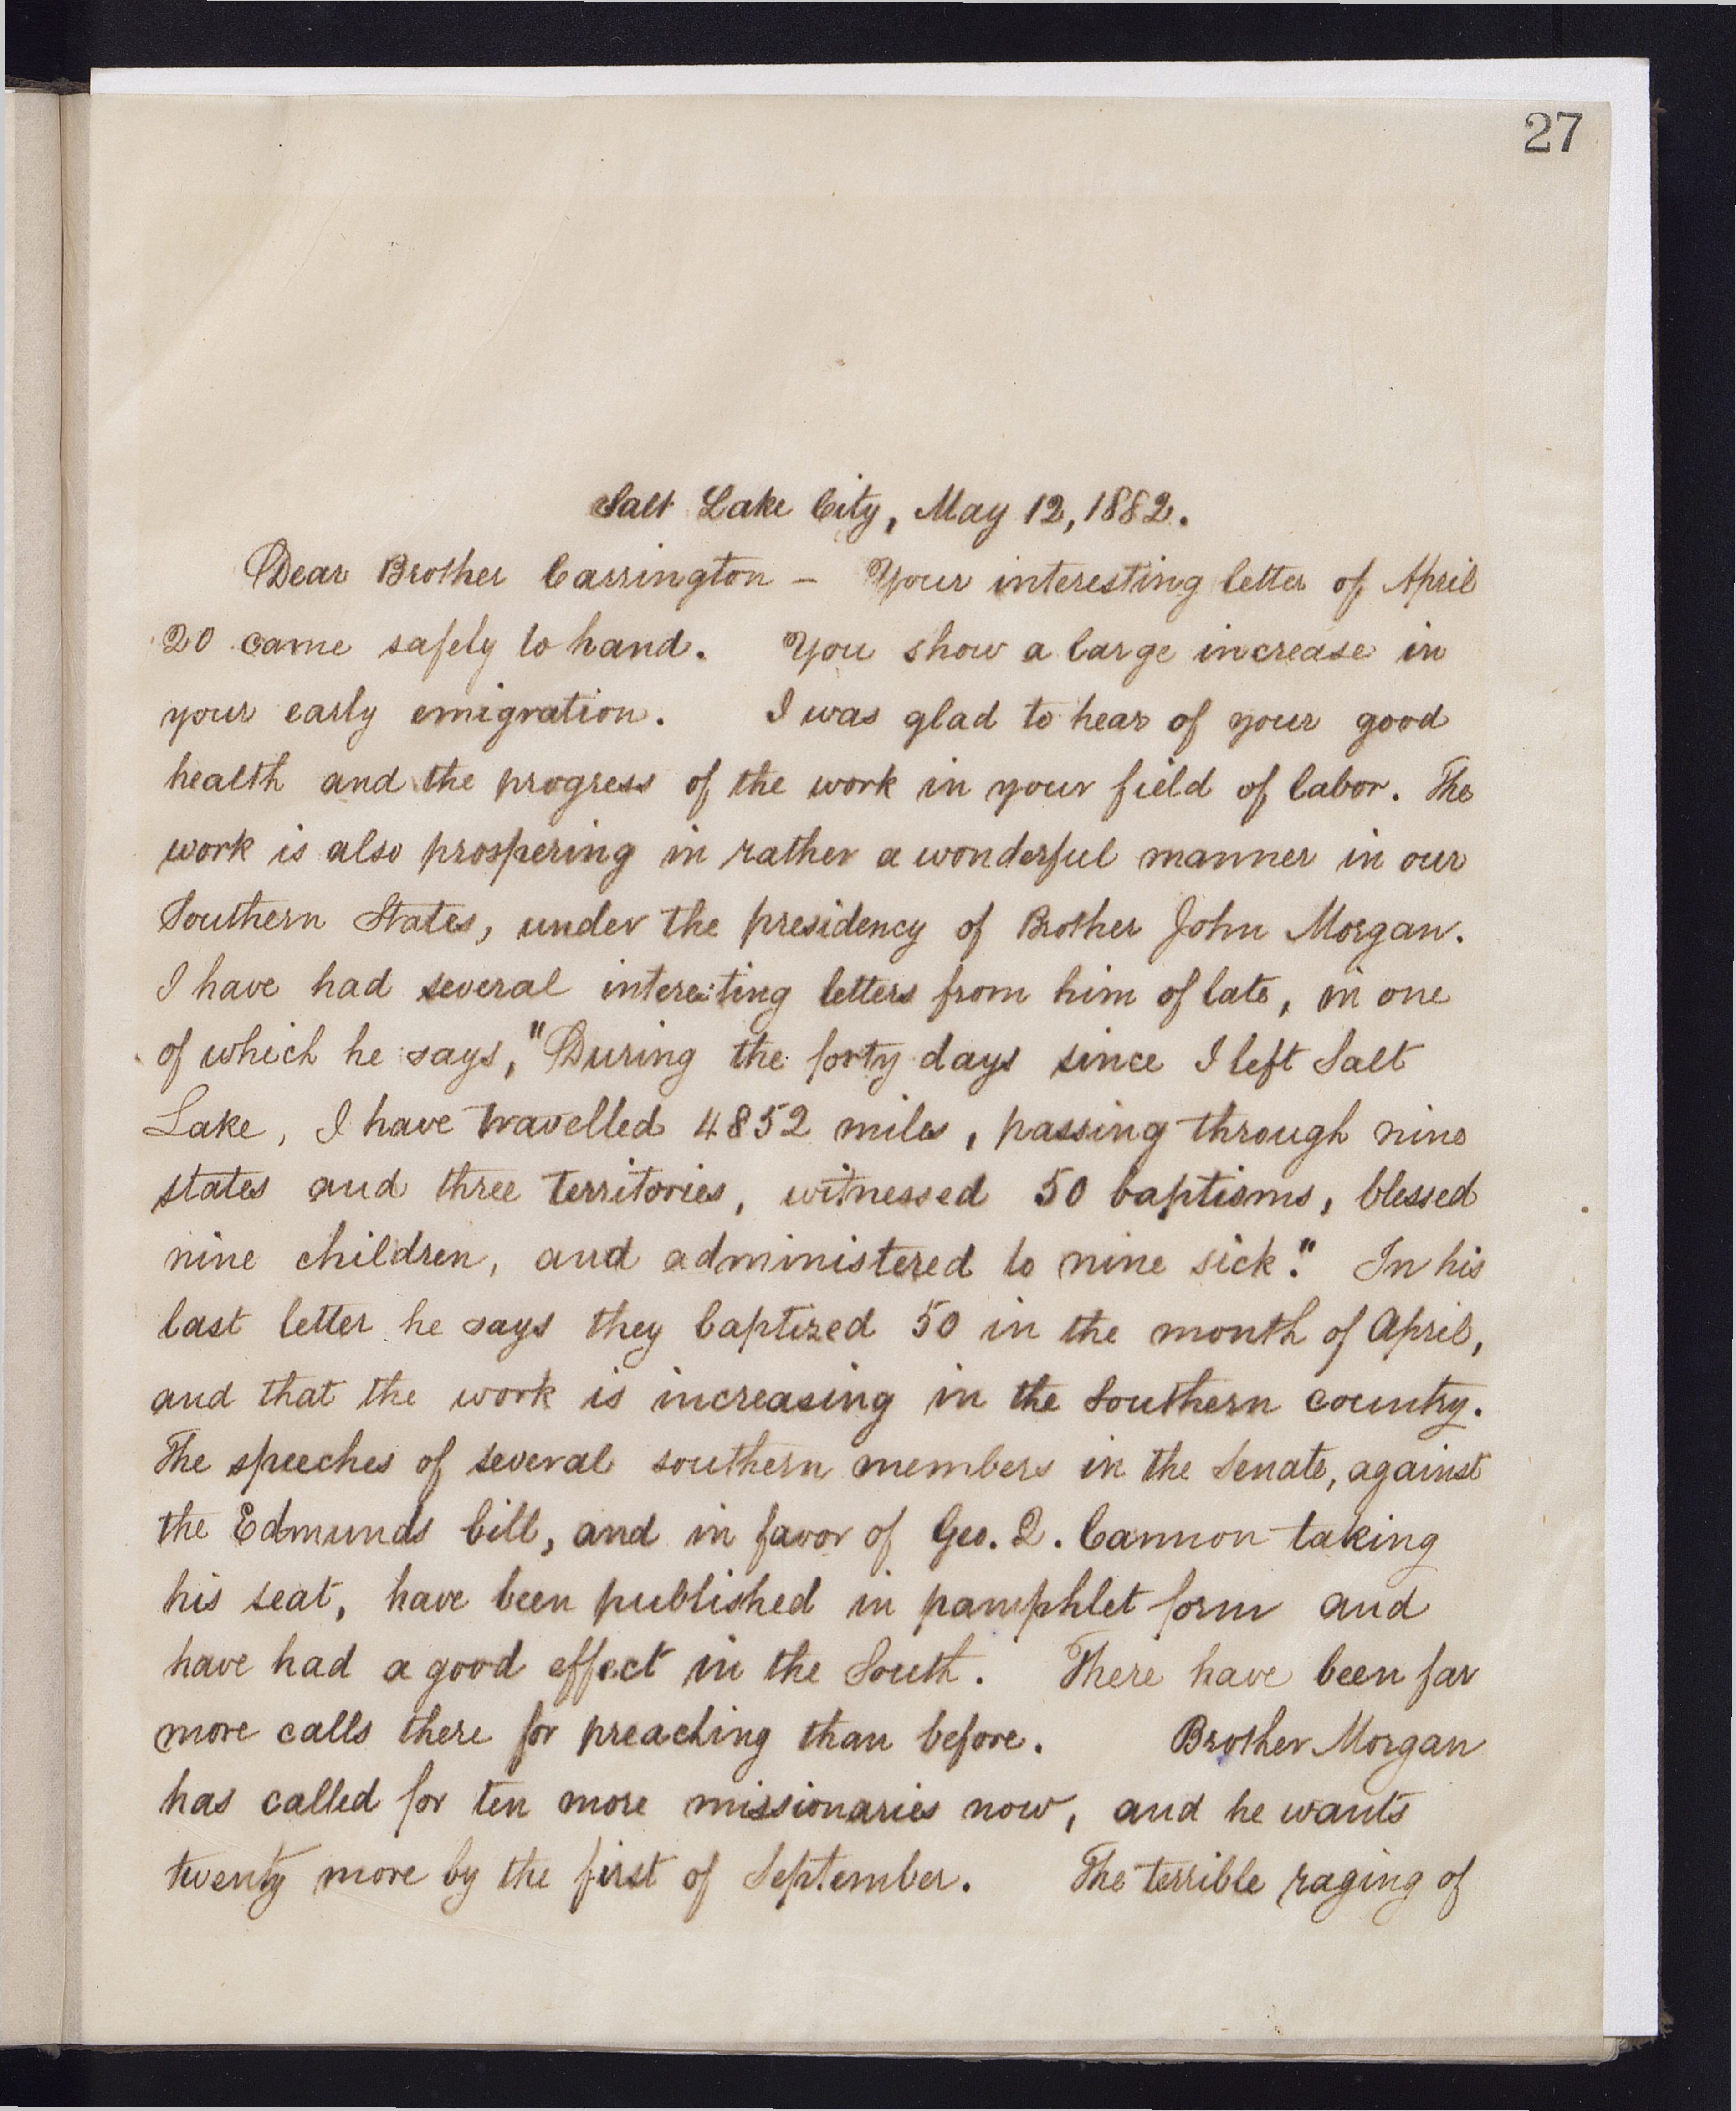 27
Salt Lake City, May 12, 1882.
Dear Brother Carrington — Your interesting letter of April
20 came safely to hand. You show a large increase in
your early emigration. I was glad to hear of your good
health and the progress of the work in your field of labor. The
work is also prospering in rather a wonderful manner in our
Southern States, under the presidency of Brother John Morgan.
I have had several interesting letters from him of late, in one
of which he says, "During the forty days since I left Salt
Lake, I have travelled 4852 miles, passing through nine
states and three territories, witnessed 50 baptisms, blessed
nine children, and administered to nine sick." In his
last letter he says they baptized 50 in the month of April,
and that the work is increasing in the Southern country.
The speeches of several southern members in the Senate, against
the Edmunds bill, and in favor of Geo. Q. Cannon taking
his seat, have been published in pamphlet form and
have had a good effect in the South. There have been far
more calls there for preaching than before. Brother Morgan
has called for ten more missionaries now, and he wants
twenty more by the first of September. The terrible raging of